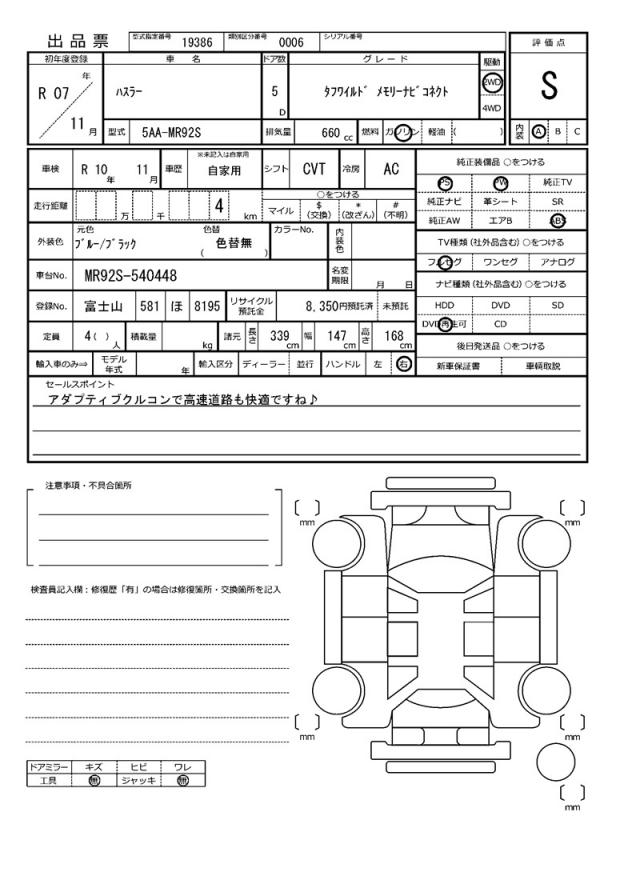 出品票 型式指定番号 19386 類別区分番号 0006 シリアル番号
評価点
S
初年度登録 車名 ドア数 グレード 駆動
R 07 年 11 月 ハスラー 5 D タフワイルド メモリーナビコネクト 2WD 4WD
型式 5AA-MR92S 排気量 660 cc 燃料 ガソリン 軽油 ( ) 内装 A B C
車検 R 10 年 11 月 車歴 ※未記入は自家用 自家用 シフト CVT 冷房 AC
純正装備品 ○をつける
PS PW 純正TV
純正ナビ 革シート SR
純正AW エアB ABS
走行距離 万 千 4 km ○をつける
マイル $ (交換) * (改ざん) # (不明)
外装色 元色 ブルー/ブラック 色替 ( 色替無 ) カラーNo. 内装色
TV種類 (社外品含む) ○をつける
フルセグ ワンセグ アナログ
車台No. MR92S-540448 名変期限 月 日
ナビ種類 (社外品含む) ○をつける
HDD DVD SD
DVD再生可 CD
登録No. 富士山 581 ほ 8195 リサイクル預託金 8,350円預託済 未預託
定員 4 ( ) 人 積載量 kg 諸元 長さ 339 cm 幅 147 cm 高さ 168 cm
後日発送品 ○をつける
新車保証書 車輌取説
輸入車のみ⇒ モデル年式 年 輸入区分 ディーラー 並行 ハンドル 左 右
セールスポイント
アダプティブクルコンで高速道路も快適ですね♪
注意事項・不具合箇所
mm
mm
検査員記入欄：修復歴「有」の場合は修復箇所・交換箇所を記入
mm
mm
mm
ドアミラー キズ ヒビ ワレ
工具 無 ジャッキ 無